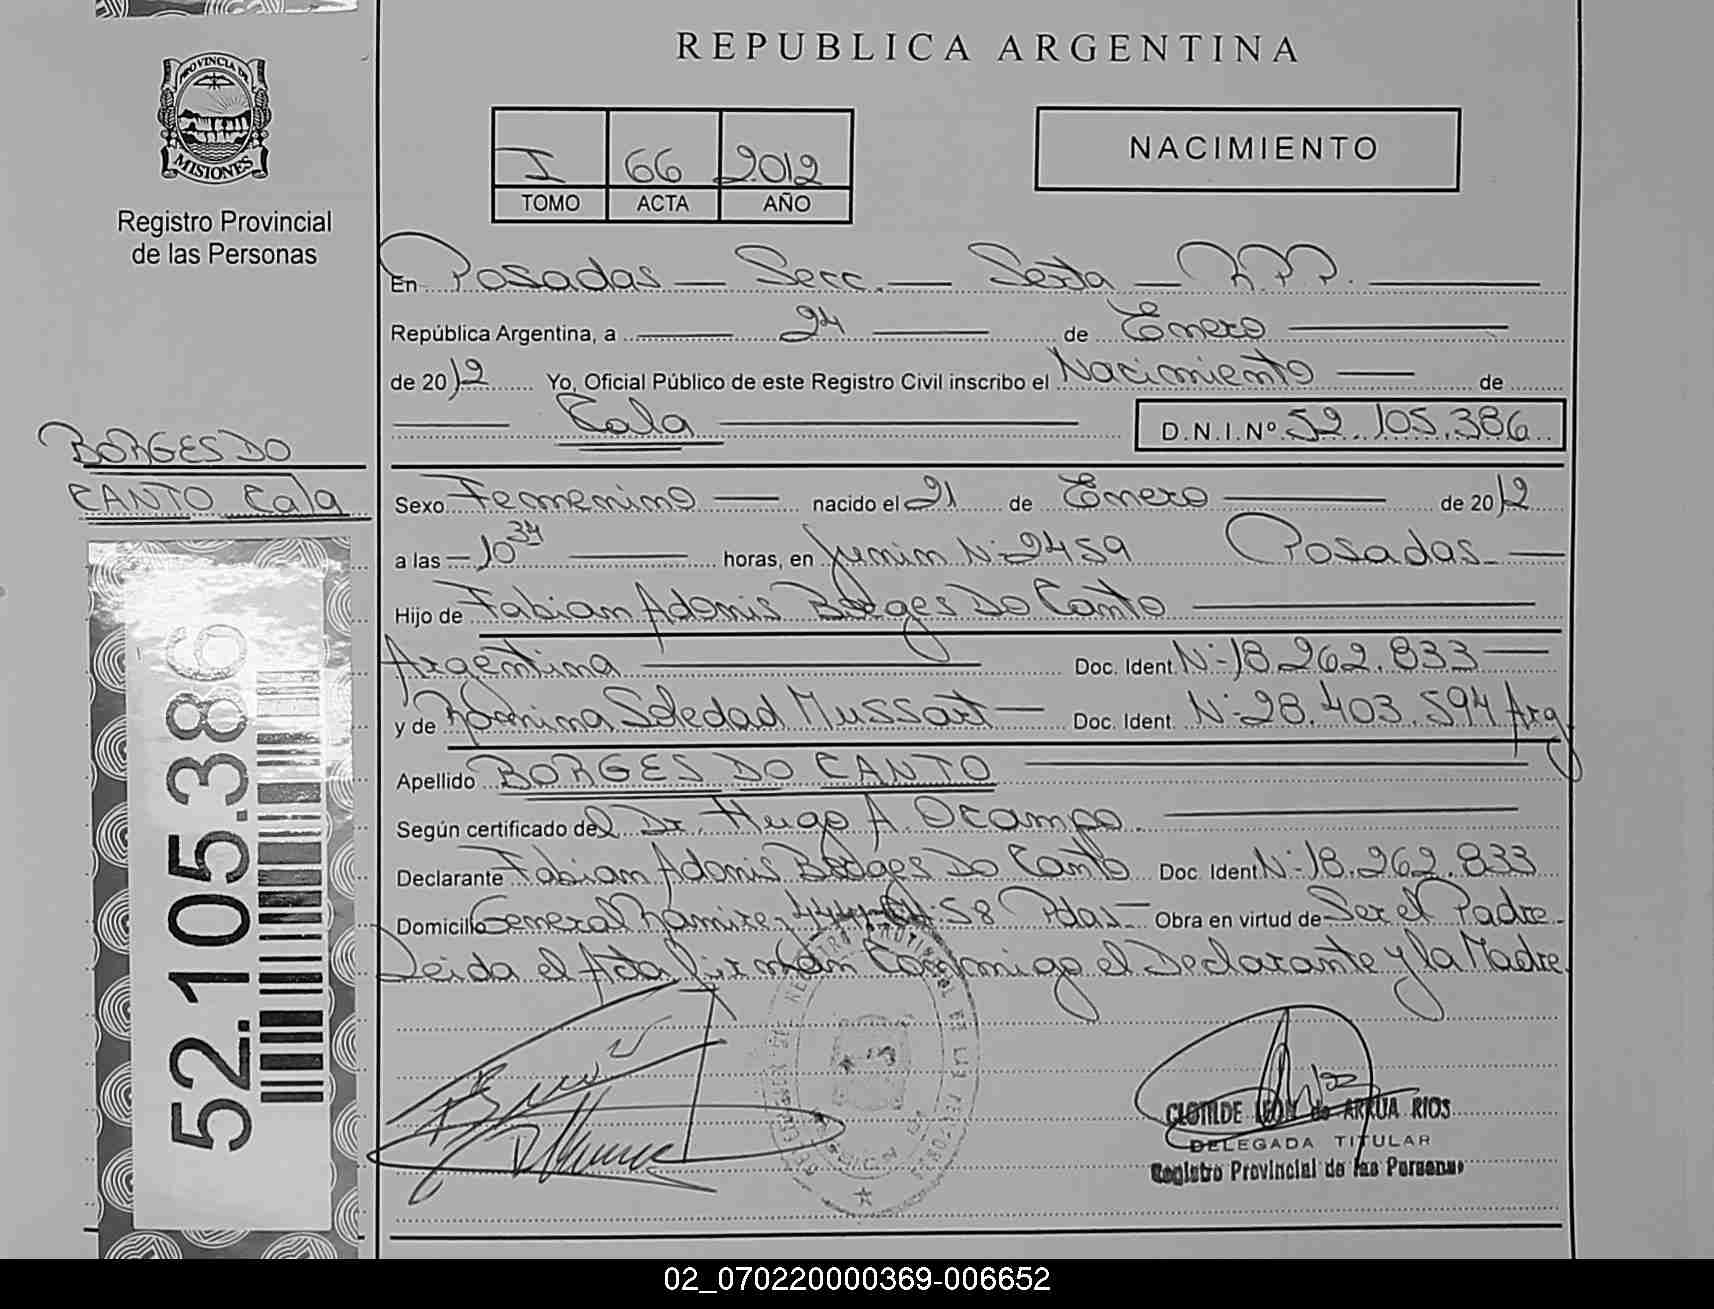 REPUBLICA ARGENTINA
PROVINCIA DE
MISIONES
Registro Provincial
de las Personas
I 66 2012
TOMO ACTA AÑO
NACIMIENTO
En Posadas — Secc. — Sexta — R.P.P.
República Argentina, a — 24 — de Enero —
de 2012 Yo, Oficial Público de este Registro Civil inscribo el Nacimiento — de
— Cala — D.N.I.Nº 52.105.386
BORGES DO
CANTO Cala
Sexo Femenino — nacido el 21 de Enero — de 2012
a las — 10 34 — horas, en Junin Nº 2459 Posadas —
Hijo de Fabian Adonis Borges Do Canto —
Argentina — Doc. Ident. Nº 18.262.833 —
y de Romina Soledad Mussart — Doc. Ident. Nº 28.403.594 Arg
Apellido BORGES DO CANTO —
Según certificado del Dr. Hugo A. Ocampo. —
Declarante Fabian Adonis Borges Do Canto Doc. Ident Nº 18.262.833
Domicilio General Ramirez 58 Pdas — Obra en virtud de Ser el Padre
Leida el Acta firman Conmigo el Declarante y la Madre.
52.105.386
CLOTILDE LEON de ARRUA RIOS
DELEGADA TITULAR
Registro Provincial de las Personas
02_070220000369-006652